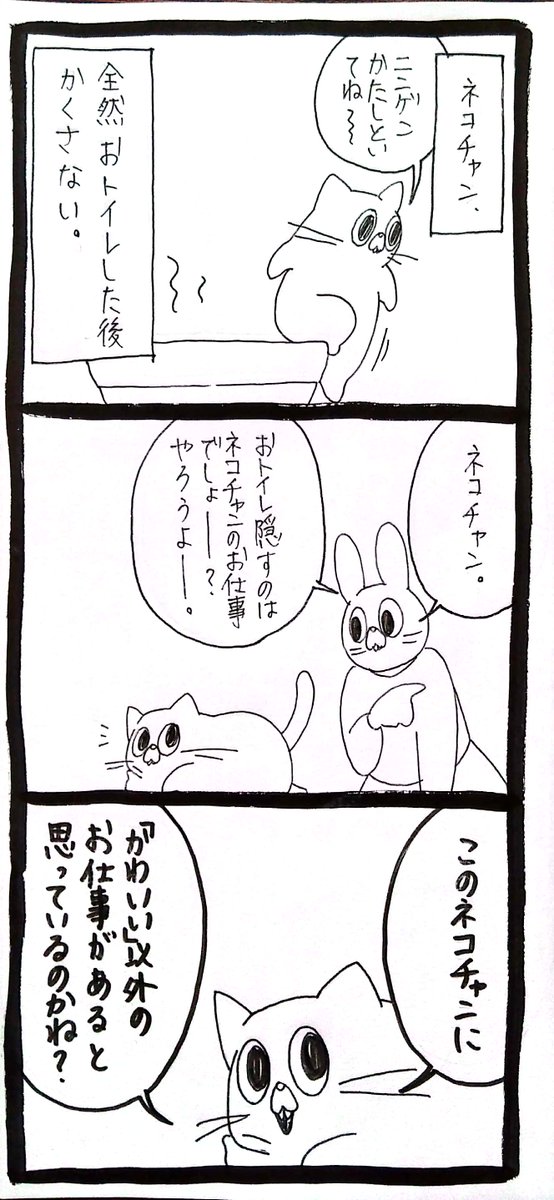 ネコチャン、
ニンゲン
かたしとい
てね〜〜
全然おトイレした後
かくさない。
ネコチャン。
おトイレ隠すのは
ネコチャンのお仕事
でしょーー？
やろうよー。
このネコチャンに
「かわいい」以外の
お仕事があると
思っているのかね？